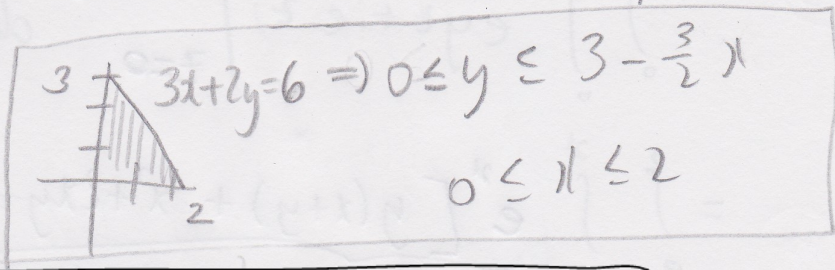 3 3x+2y=6 ⇒ 0 ≤ y ≤ 3 - 3/2 x
0 ≤ x ≤ 2
2